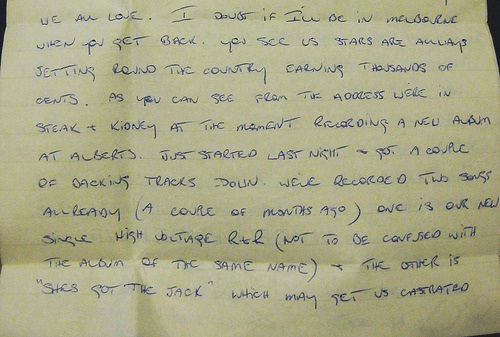 WE ALL LOVE. I DOUBT IF I'LL BE IN MELBOURNE
WHEN YOU GET BACK. YOU SEE US STARS ARE ALWAYS
JETTING ROUND THE COUNTRY EARNING THOUSANDS OF
CENTS. AS YOU CAN SEE FROM THE ADDRESS WE'RE IN
STEAK + KIDNEY AT THE MOMENT RECORDING A NEW ALBUM
AT ALBERTS. JUST STARTED LAST NIGHT + GOT A COUPLE
OF BACKING TRACKS DOWN. WE'VE RECORDED TWO SONGS
ALLREADY (A COUPLE OF MONTHS AGO) ONE IS OUR NEW
SINGLE HIGH VOLTAGE R&R (NOT TO BE CONFUSED WITH
THE ALBUM OF THE SAME NAME) + THE OTHER IS
"SHES GOT THE JACK" WHICH MAY GET US CASTRATED